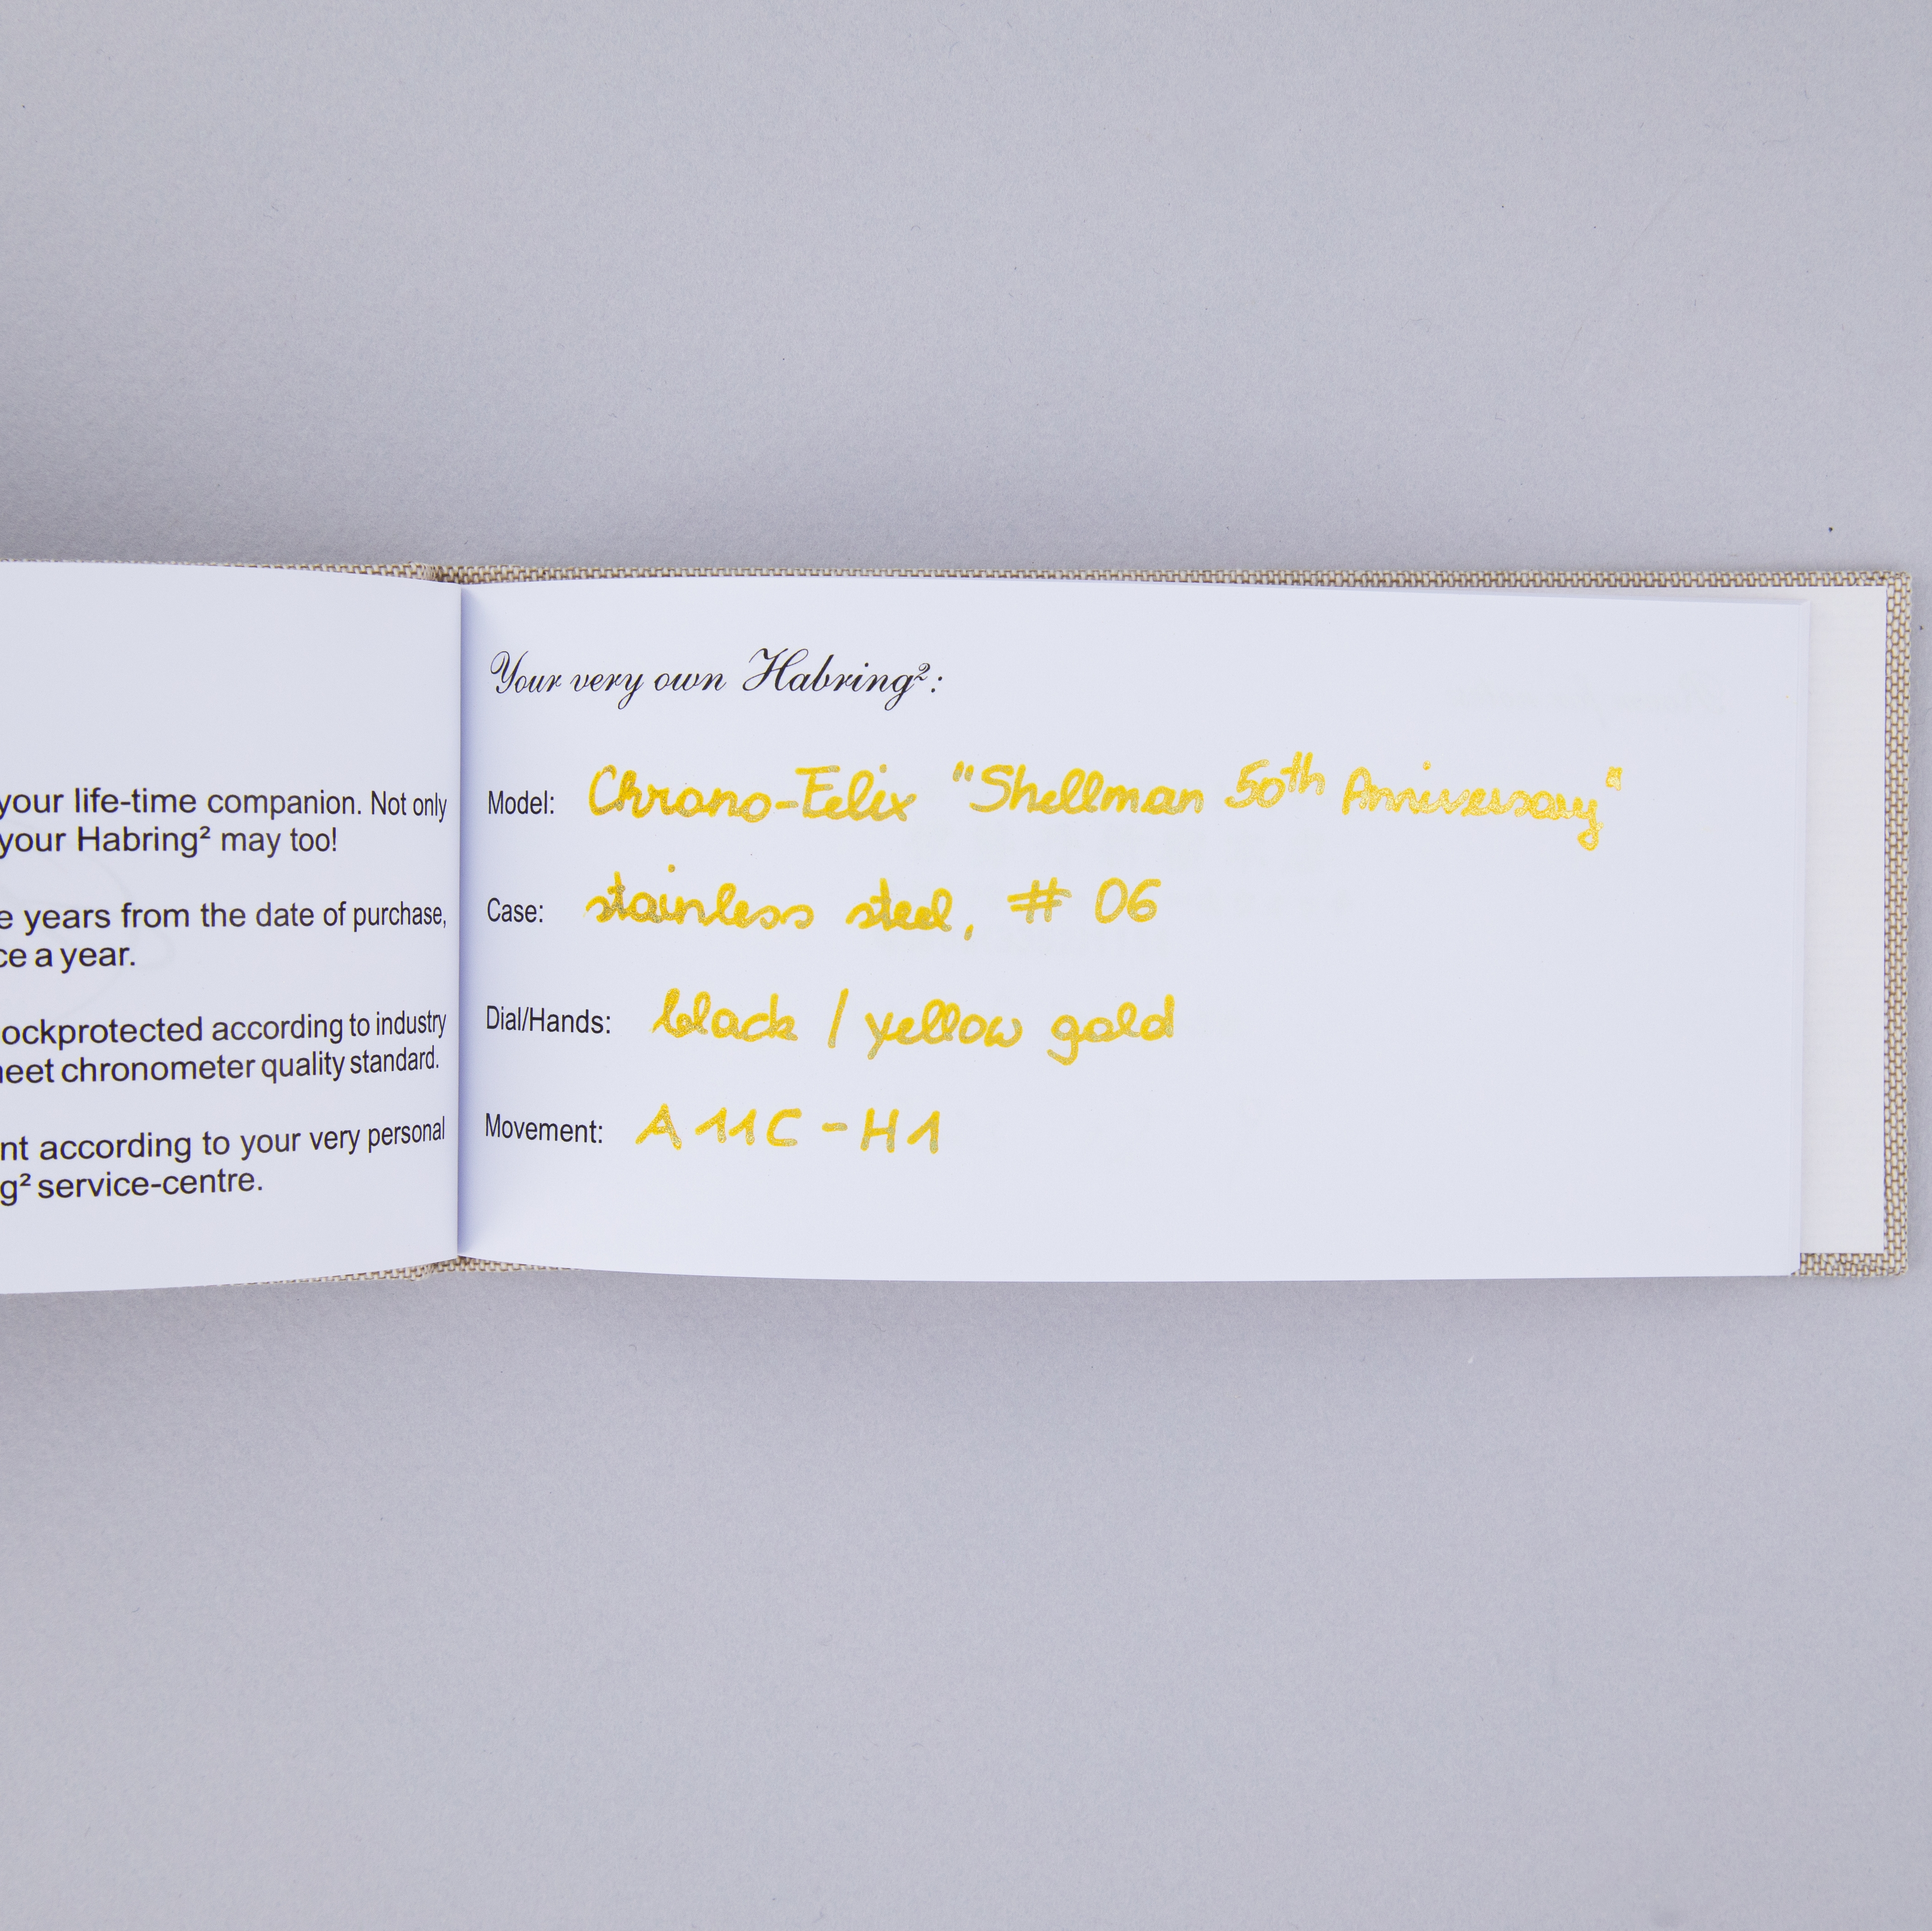 your life-time companion. Not only
your Habring² may too!
e years from the date of purchase,
ce a year.
ockprotected according to industry
eet chronometer quality standard.
nt according to your very personal
g² service-centre.
Your very own Habring²:
Model: Chrono-Felix "Shellman 50th Anniversary"
Case: stainless steel, # 06
Dial/Hands: black / yellow gold
Movement: A11C-H1